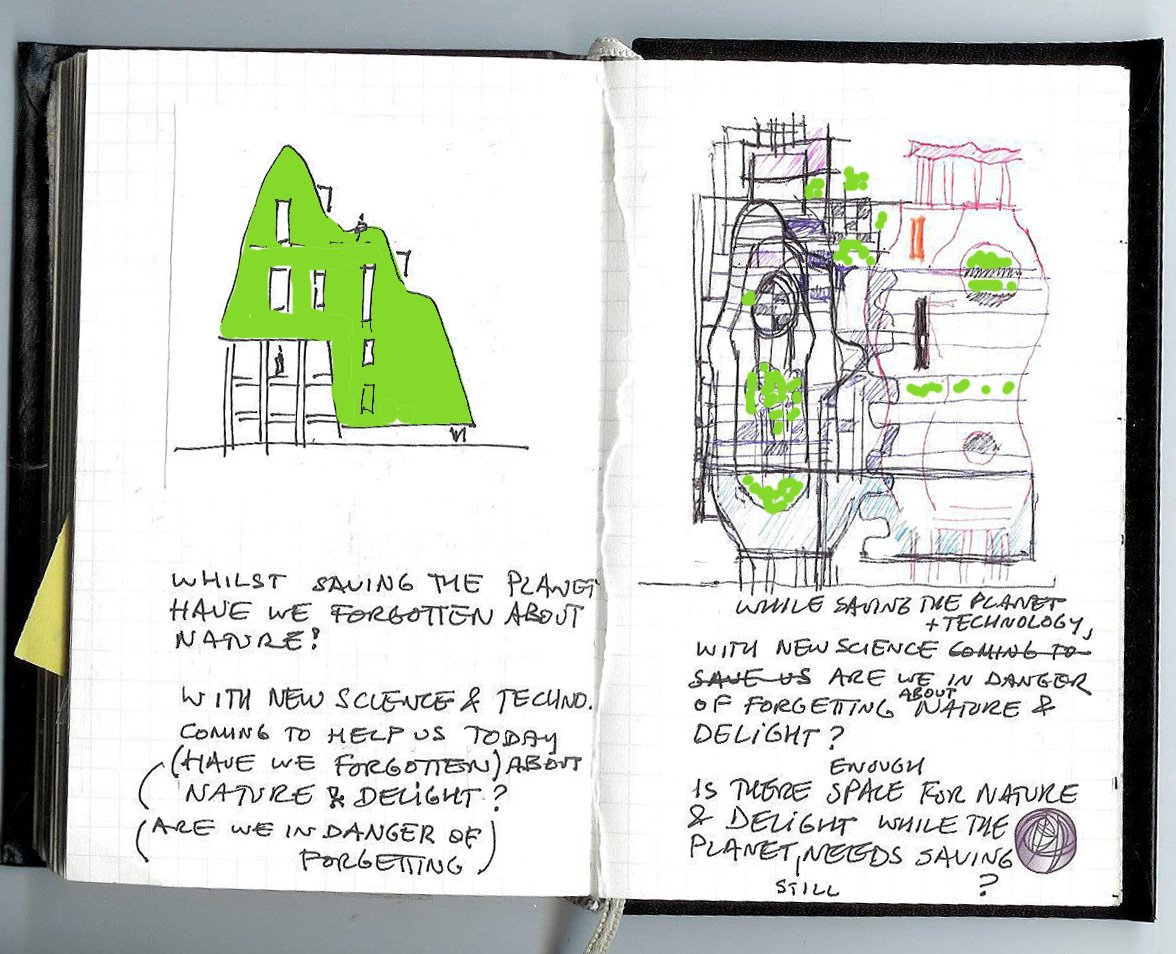 WHILST SAVING THE PLANET
HAVE WE FORGOTTEN ABOUT
NATURE?
WITH NEW SCIENCE & TECHNO.
COMING TO HELP US TODAY
(HAVE WE FORGOTTEN) ABOUT
NATURE & DELIGHT?
(ARE WE IN DANGER OF
FORGETTING)
WHILE SAVING THE PLANET
+ TECHNOLOGY,
WITH NEW SCIENCE COMING TO
SAVE US ARE WE IN DANGER
ABOUT
OF FORGETTING NATURE &
DELIGHT?
ENOUGH
IS THERE SPACE FOR NATURE
& DELIGHT WHILE THE
PLANET, NEEDS SAVING
STILL ?